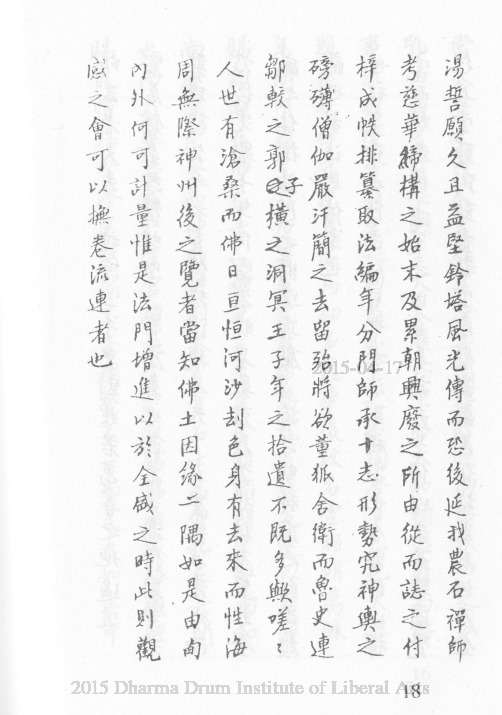 湯誓願久且益堅鈴塔風光傳而恐後延我農石禪師
考慈華締構之始末及累朝興廢之所由從而誌之付
梓成帙排纂取法編年分門師承十志形勢究神輿之
磅礴僧伽嚴汗簡之去留殆將欲董狐舍衛而魯史連
鄒較之郭子橫之洞冥王子年之拾遺不既多歟嗟〻
人世有滄桑而佛日亘恒河沙刦色身有去來而性海
周無際神州後之覽者當知佛土因緣一隅如是由甸
內外何可計量惟是法門增進以於全盛之時此則觀
感之會可以撫卷流連者也
2015-04-17
18
2015 Dharma Drum Institute of Liberal Arts